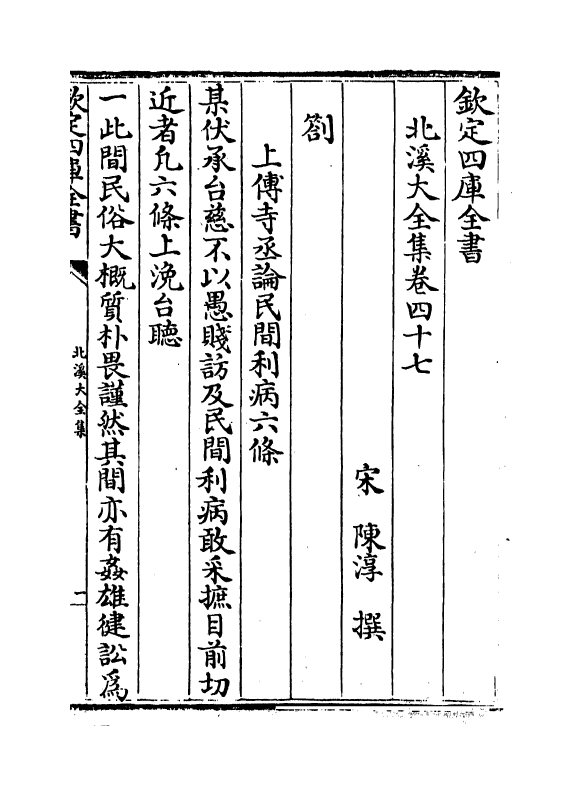 欽定四庫全書
北溪大全集卷四十七
宋 陳淳 撰
劄
上傅寺丞論民間利病六條
某伏承台慈不以愚賤訪及民間利病敢采摭目前切
近者凡六條上浼台聽
一此間民俗大概質朴畏謹然其間亦有姦雄健訟為
欽定四庫全書
北溪大全集